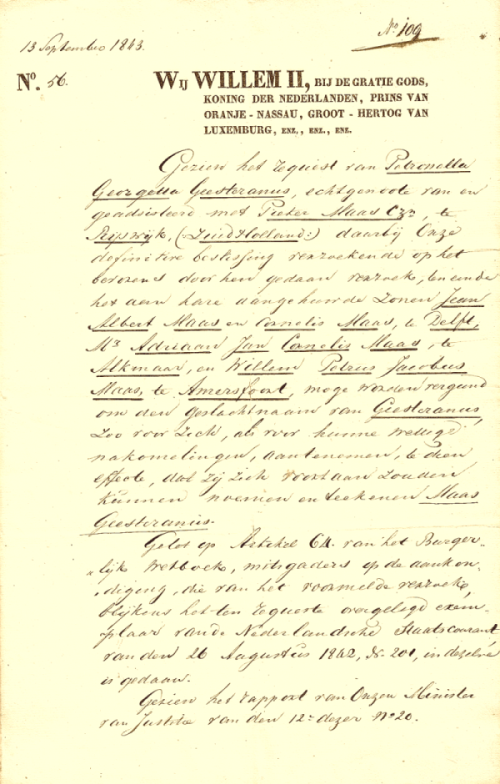 No 109
13 September 1843.
No. 56.
WIJ WILLEM II, BIJ DE GRATIE GODS,
KONING DER NEDERLANDEN, PRINS VAN
ORANJE - NASSAU, GROOT - HERTOG VAN
LUXEMBURG, ENZ., ENZ., ENZ.
Gezien het request van Petronella
Georgetta Geesteranus, echtgenoote van en
geadsisteerd met Pieter Maas Czn, te
Rijswijk, (Zuid Holland) daarbij Onze
definitive beslissing verzoekende op het
bevorens door hen gedaan verzoek, ten einde
het aan hare aangehuwde zonen Jean
Albert Maas en Cornelis Maas, te Delft,
Mr Adriaan Jan Cornelis Maas, te
Alkmaar, en Willem Petrus Jacobus
Maas, te Amersfoort, moge worden vergund
om den geslachtnaam van Geesteranus,
zoo voor zich, als voor hunne wettige
nakomelingen, aantenemen, te dien
effecte, dat zij zich voortaan zouden
kunnen noemen en teekenen Maas
Geesteranus.
Gelet op Artikel 64. van het Burger-
lijk Wetboek, mitsgaders op de aankon-
diging, die van het voormelde verzoek,
blijkens het ten requeste overgelegd exem-
plaar van de Nederlandsche Staatscourant
van den 26 Augustus 1842, No. 201, in dezelve
is gedaan.
Gezien het rapport van Onzen Minister
van Justitie van den 12n dezer No 20.